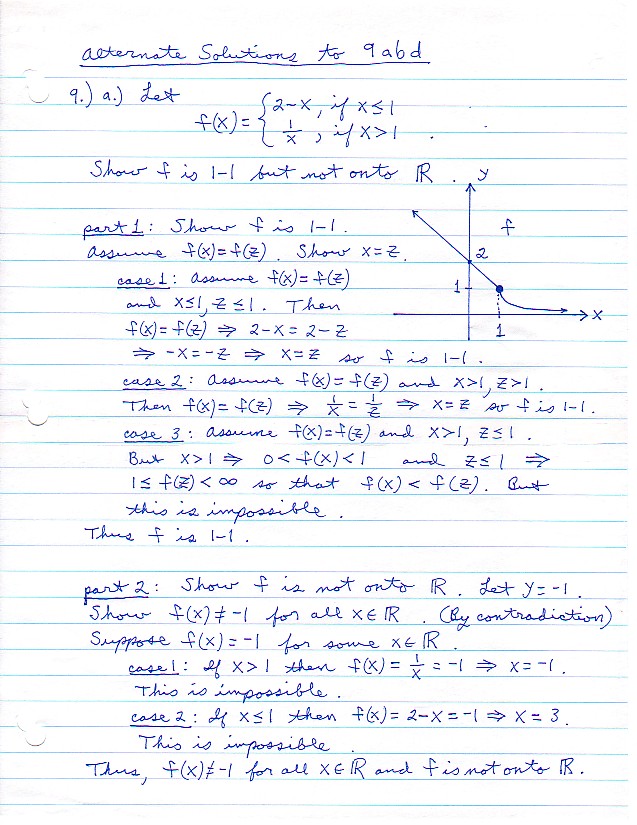 Alternate Solutions to 9abd
9.) a.) Let
f(x) = { 2-x, if x ≤ 1
1/x, if x > 1 .
Show f is 1-1 but not onto ℝ.
y
f
2
1
1
x
part 1: Show f is 1-1.
Assume f(x)=f(z). Show x=z.
case 1: Assume f(x)=f(z)
and x≤1, z≤1. Then
f(x)=f(z) ⇒ 2-x=2-z
⇒ -x=-z ⇒ x=z so f is 1-1.
case 2: Assume f(x)=f(z) and x>1, z>1.
Then f(x)=f(z) ⇒ 1/x = 1/z ⇒ x=z so f is 1-1.
case 3: Assume f(x)=f(z) and x>1, z≤1.
But x>1 ⇒ 0<f(x)<1 and z≤1 ⇒
1≤f(z)<∞ so that f(x)<f(z). But
this is impossible.
Thus f is 1-1.
part 2: Show f is not onto ℝ. Let y=-1.
Show f(x)≠-1 for all x∈ℝ. (By contradiction)
Suppose f(x)=-1 for some x∈ℝ.
case 1: If x>1 then f(x)=1/x=-1 ⇒ x=-1.
This is impossible.
case 2: If x≤1 then f(x)=2-x=-1 ⇒ x=3.
This is impossible.
Thus, f(x)≠-1 for all x∈ℝ and f is not onto ℝ.